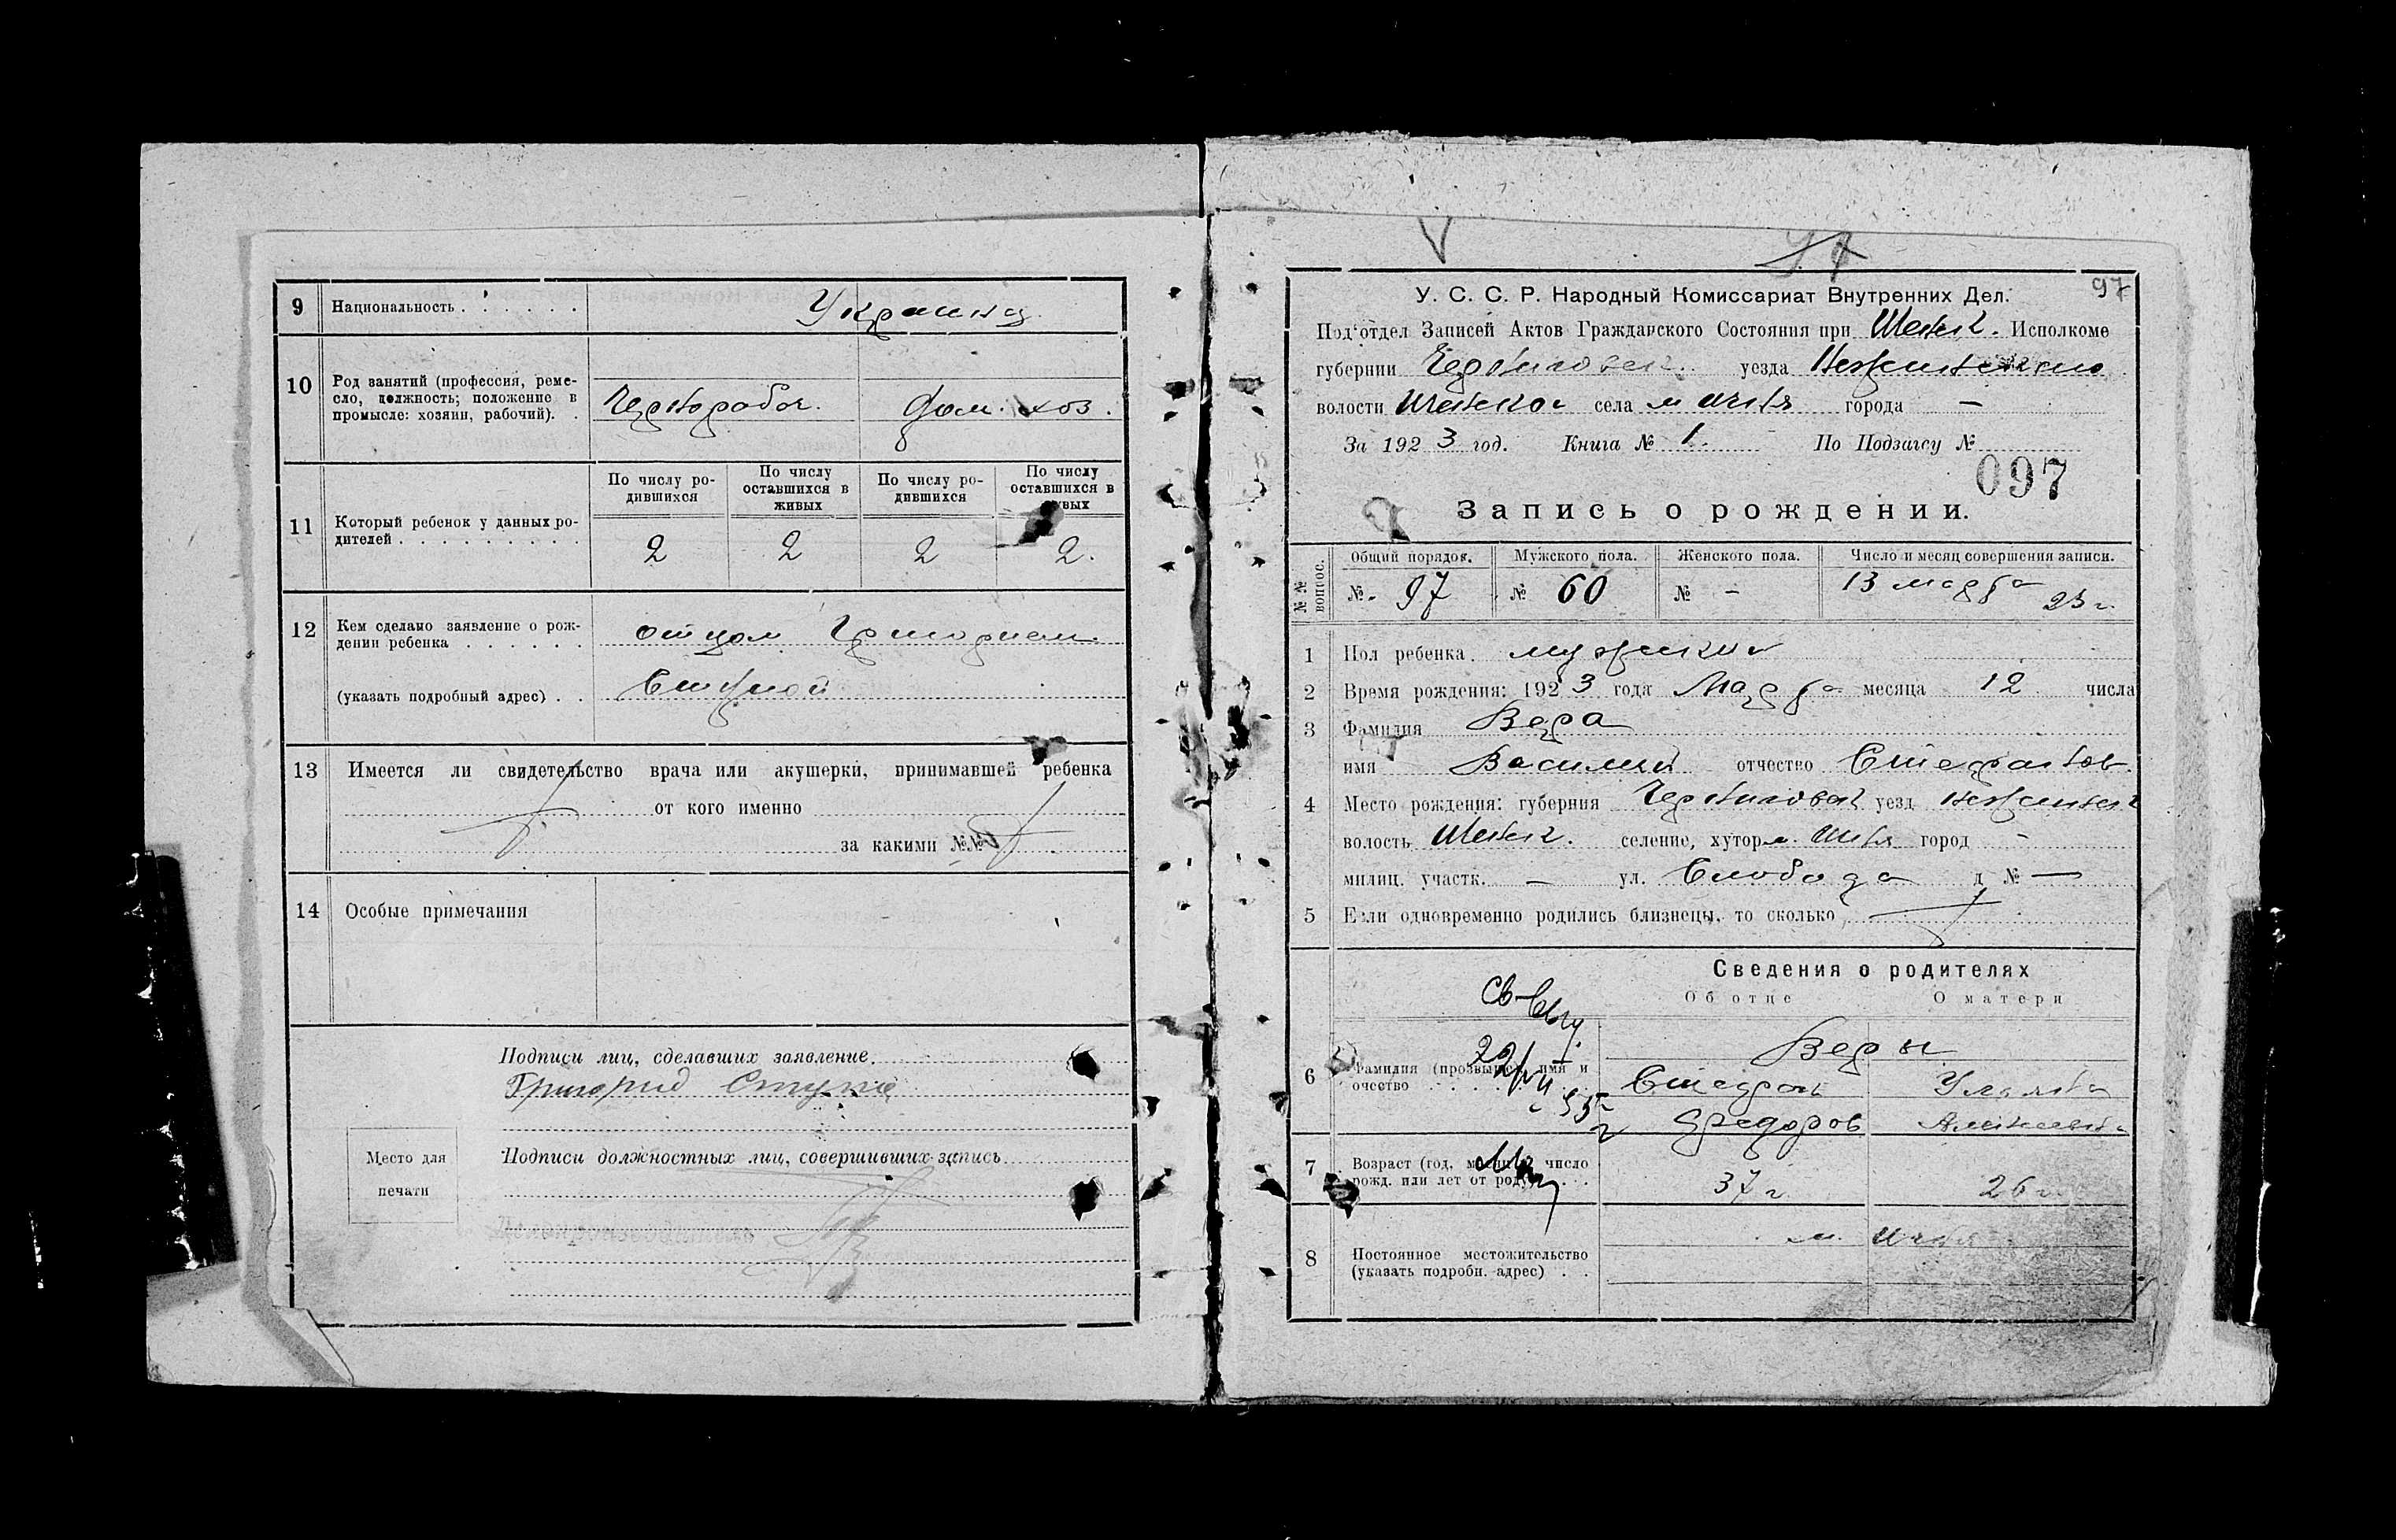 9 Национальность . . . . . . Украинц.
10 Род занятий (профессия, реме-
сло, должность; положение в
промысле: хозяин, рабочий). .
Чернорабоч. Дом. хоз.
11 Который ребенок у данных ро-
дителей . . . . . . . . . .
По числу ро-
дившихся
По числу
оставшихся в
живых
По числу ро-
дившихся
По числу
оставшихся в
живых
2 2 2 2.
12 Кем сделано заявление о рож-
дении ребенка . . . . . .
отцом Григорием
(указать подробный адрес) . .
13 Имеется ли свидетельство врача или акушерки, принимавшей ребенка
от кого именно
за какими №№
14 Особые примечания
Подписи лиц, сделавших заявление.
Григорий Ступка
Место для
печати
Подписи должностных лиц, совершивших запись
Делопроизводитель
97
97
У. С. С. Р. Народный Комиссариат Внутренних Дел.
Под'отдел Записей Актов Гражданского Состояния при Исполкоме
губернии Черниговск. уезда Неженского
волости села м города —
За 1923 год. Книга № 1. По Подзагсу №
097
Запись о рождении.
№№ вопрос.
Общий порядок. Мужского пола. Женского пола. Число и месяц совершения записи.
№ 97 № 60 № - 13 марта 23 г.
1 Пол ребенка. мужской
2 Время рождения: 1923 года Марта месяца 12 числа
3 Фамилия Вера
имя Василий отчество Стефанов.
4 Место рождения: губерния Черниговск уезд Неженск
волость селение, хутор м. город -
милиц. участк. — ул. Слобода д № —
5 Если одновременно родились близнецы, то сколько
Сведения о родителях
Об отце О матери
6 Фамилия (прозвище), имя и
очество . . .
Веры
Стефан Ульяна
Федоров Алексеевна
7 Возраст (год, месяц и число
рожд. или лет от роду) . . .
37 г 26 г.
8 Постоянное местожительство
(указать подробн. адрес) . .
м. Ичня